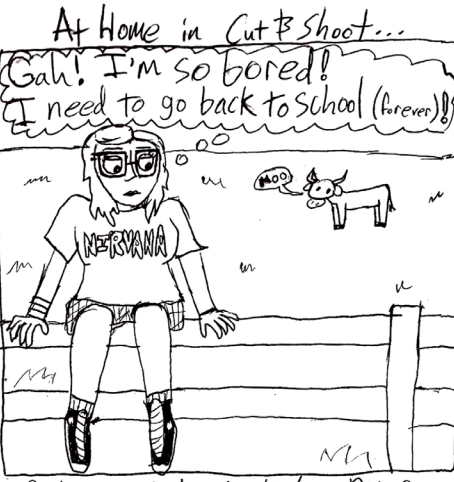 At Home in Cut & Shoot...
Gah! I'm so bored!
I need to go back to school (forever)!!
MOO
NIRVANA